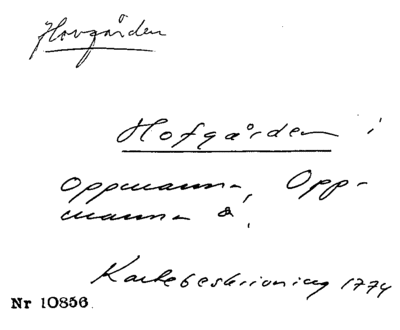 Hovgården
Hofgården i
Oppmanna, Opp-
manna s.
Kartebeskrivning 1774
Nr 10856